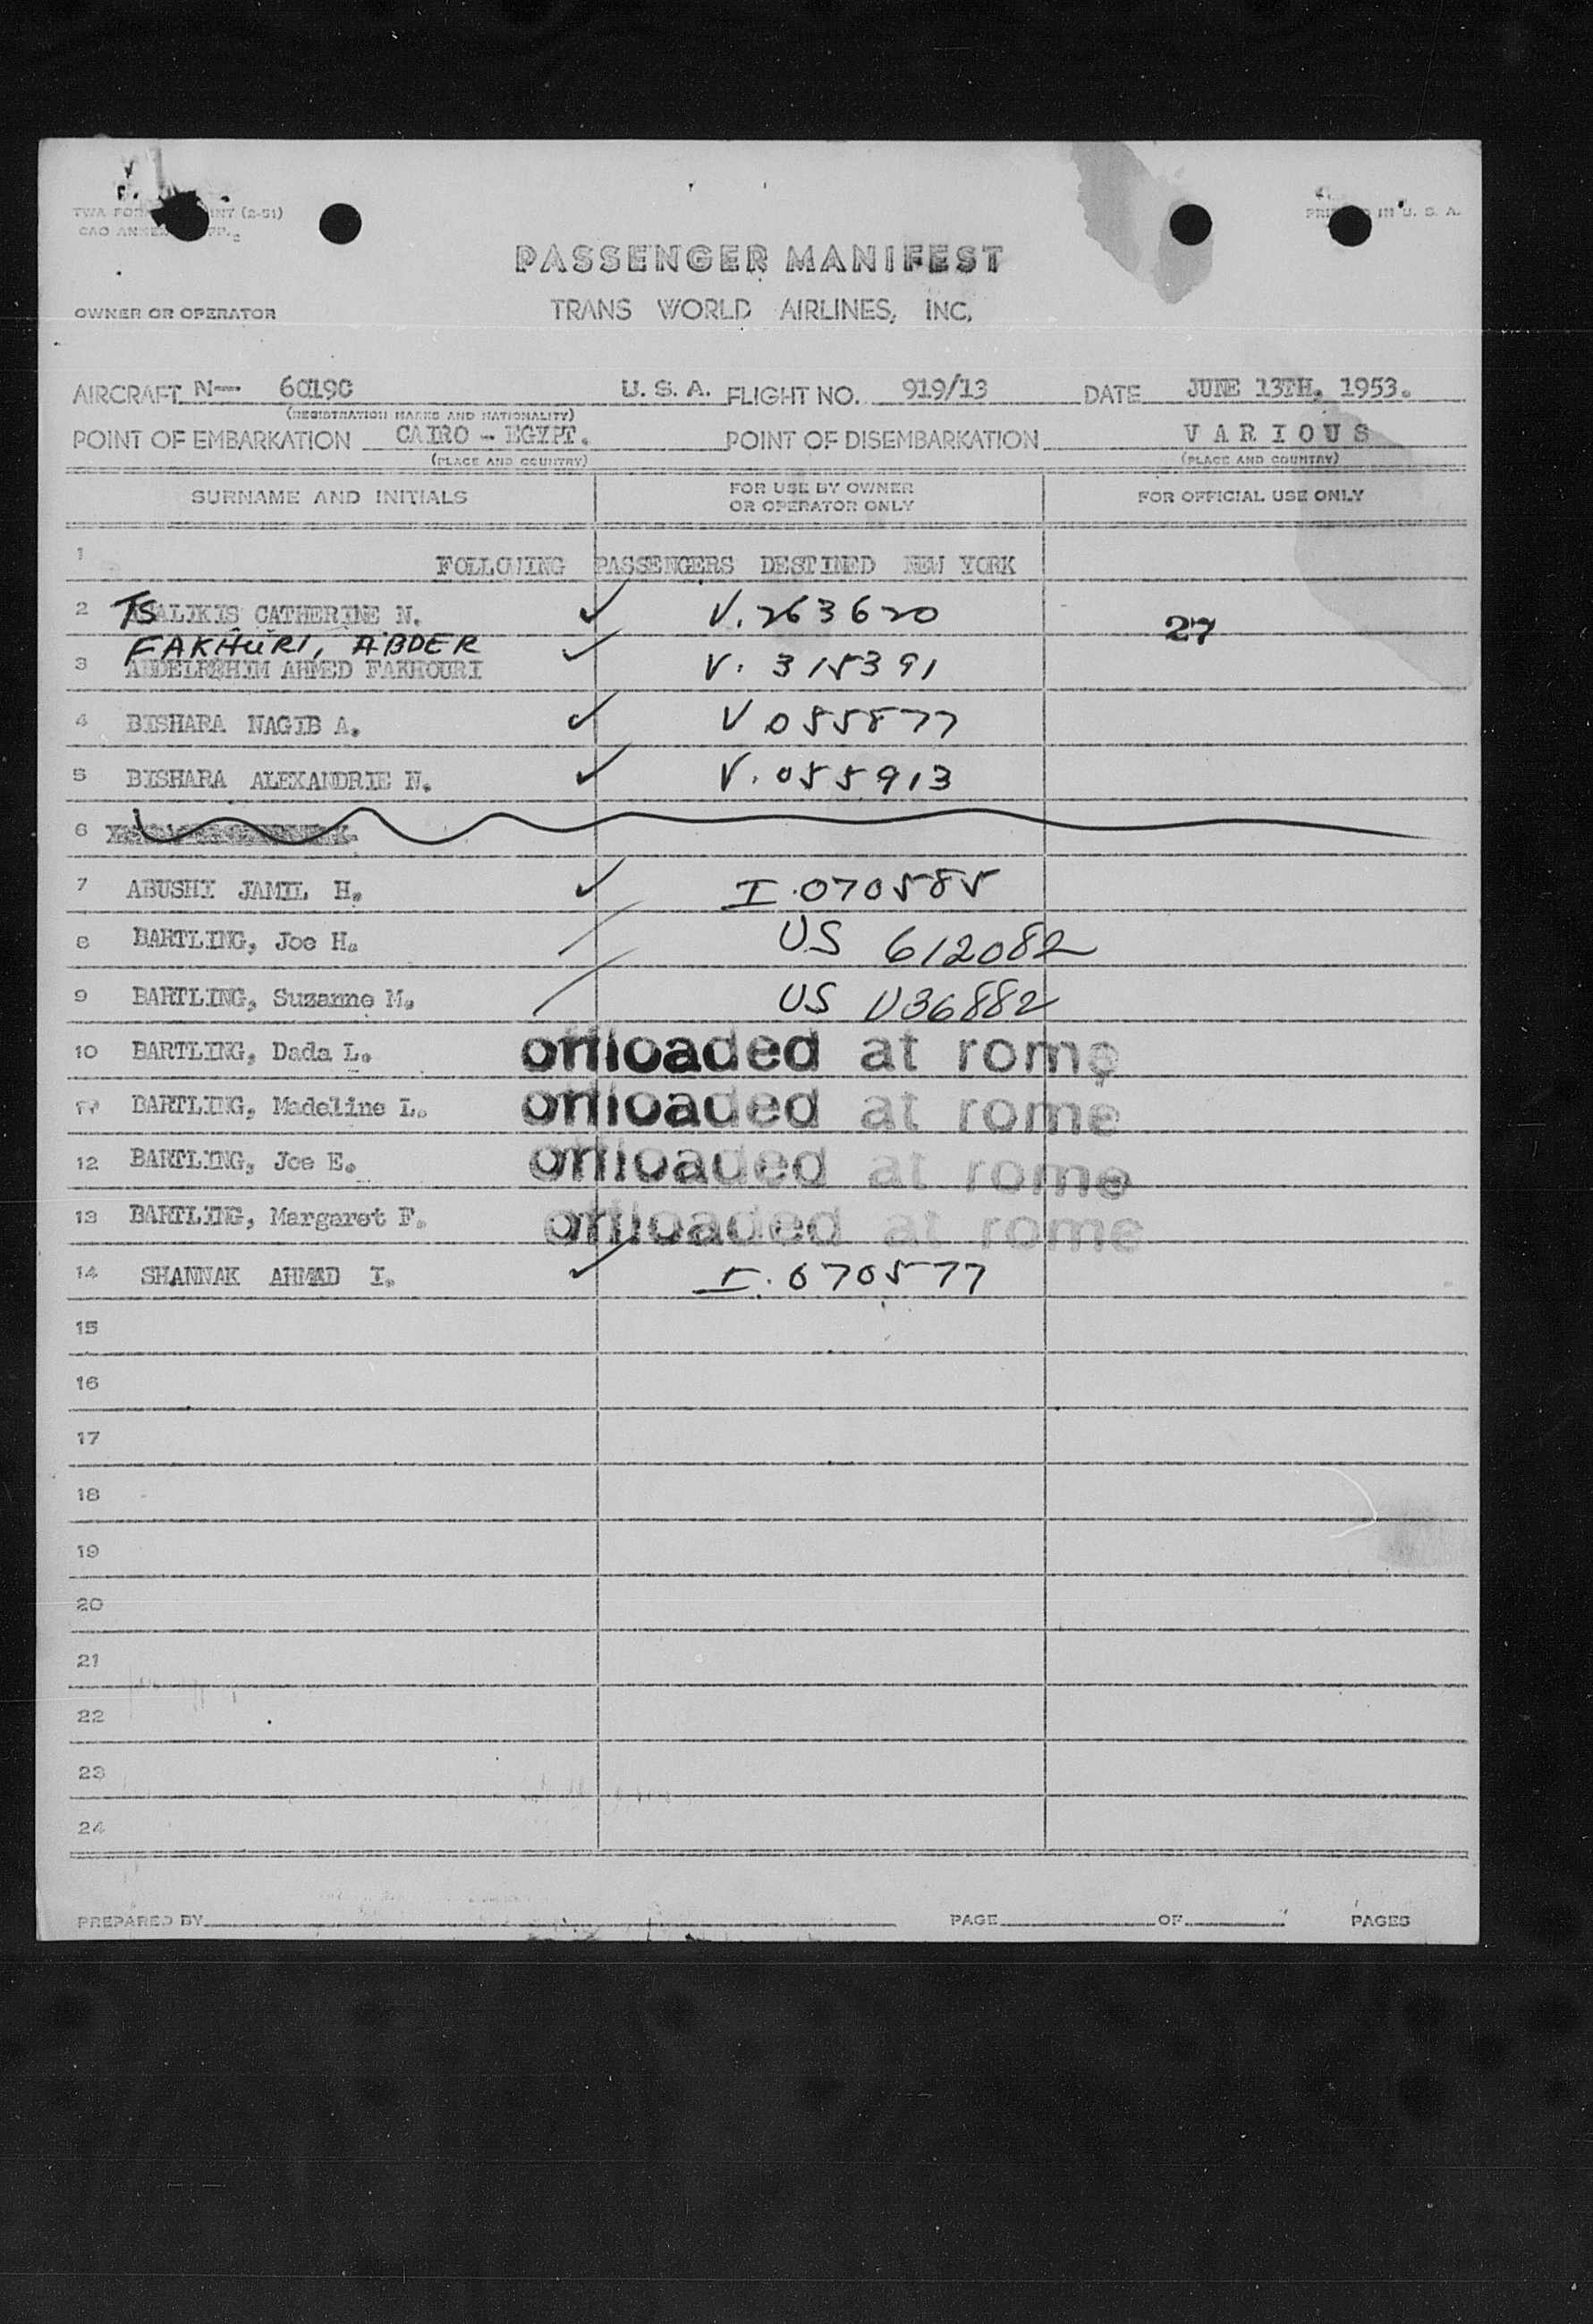 TWA FOR INT (2-51)
PRI IN U. S. A.
CAO ANNEX
PASSENGER MANIFEST
OWNER OR OPERATOR
TRANS WORLD AIRLINES, INC.
AIRCRAFT N— 6019C U. S. A. FLIGHT NO. 919/13 DATE JUNE 13TH. 1953.
(REGISTRATION MARKS AND NATIONALITY)
POINT OF EMBARKATION CAIRO - EGYPT. POINT OF DISEMBARKATION VARIOUS
(PLACE AND COUNTRY) (PLACE AND COUNTRY)
SURNAME AND INITIALS FOR USE BY OWNER OR OPERATOR ONLY FOR OFFICIAL USE ONLY
1 FOLLOWING PASSENGERS DESTINED NEW YORK
2 TSALIKIS CATHERINE N. ✓ V. 263620
27
FAKHURI, ABDER
3 ABDELRAHIM AHMED FAKHOURI ✓ V. 315391
4 BISHARA NAGIB A. ✓ V 055877
5 BISHARA ALEXANDRIE N. ✓ V. 055913
6
7 ABUSHI JAMIL H. ✓ I. 070585
8 BARTLING, Joe H. / US 612082
9 BARTLING, Suzanne M. / US U36882
10 BARTLING, Dada L. offloaded at rome
11 BARTLING, Madeline L. offloaded at rome
12 BARTLING, Joe E. offloaded at rome
13 BARTLING, Margaret F. offloaded at rome
14 SHANNAK AHMAD I. ✓ I. 070577
15
16
17
18
19
20
21
22
23
24
PREPARED BY PAGE OF PAGES